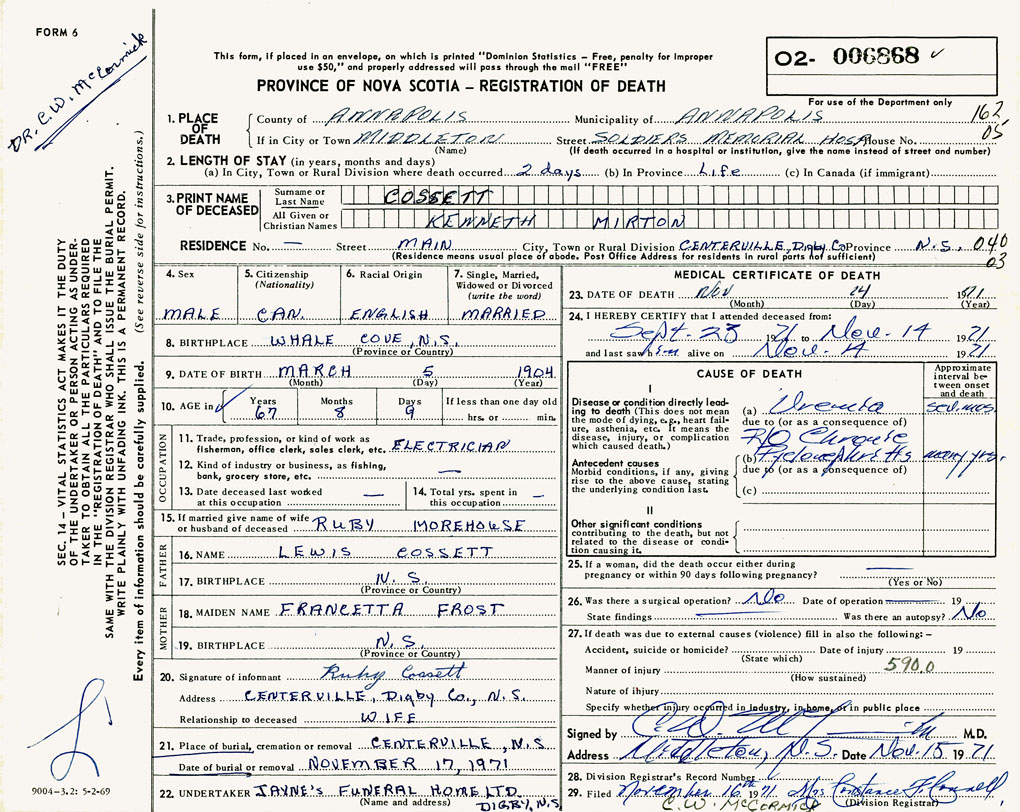 FORM 6
DR. C.W. McCormick
This form, if placed in an envelope, on which is printed "Dominion Statistics – Free, penalty for improper
use $50," and properly addressed will pass through the mail "FREE"
O2- 006868
PROVINCE OF NOVA SCOTIA – REGISTRATION OF DEATH
For use of the Department only
1. PLACE OF DEATH
County of ANNAPOLIS Municipality of ANNAPOLIS 162
If in City or Town MIDDLETON Street SOLDIERS MEMORIAL HOSP House No. 05
(Name) (If death occurred in a hospital or institution, give the name instead of street and number)
2. LENGTH OF STAY (in years, months and days)
(a) In City, Town or Rural Division where death occurred 2 days (b) In Province Life (c) In Canada (if immigrant)
3. PRINT NAME OF DECEASED
Surname or Last Name COSSETT
All Given or Christian Names KENNETH MIRTON
RESIDENCE No. — Street MAIN City, Town or Rural Division CENTERVILLE, Digby Co Province N.S. 040
(Residence means usual place of abode. Post Office Address for residents in rural parts not sufficient) 03
4. Sex
MALE
5. Citizenship (Nationality)
CAN.
6. Racial Origin
ENGLISH
7. Single, Married, Widowed or Divorced (write the word)
MARRIED
8. BIRTHPLACE WHALE COVE, N.S.
(Province or Country)
9. DATE OF BIRTH MARCH 5 1904
(Month) (Day) (Year)
10. AGE in Years Months Days If less than one day old
67 8 9 hrs. or min.
OCCUPATION
11. Trade, profession, or kind of work as
fisherman, office clerk, sales clerk, etc. ELECTRICIAN
12. Kind of industry or business, as fishing,
bank, grocery store, etc. —
13. Date deceased last worked
at this occupation —
14. Total yrs. spent in
this occupation —
15. If married give name of wife
or husband of deceased RUBY MOREHOUSE
FATHER
16. NAME LEWIS COSSETT
17. BIRTHPLACE N.S.
(Province or Country)
MOTHER
18. MAIDEN NAME FRANCETTA FROST
19. BIRTHPLACE N.S.
(Province or Country)
20. Signature of informant Ruby Cossett
Address CENTERVILLE, Digby Co., N.S.
Relationship to deceased WIFE
21. Place of burial, cremation or removal CENTERVILLE, N.S.
Date of burial or removal NOVEMBER 17, 1971
22. UNDERTAKER JAYNE'S FUNERAL HOME LTD.
(Name and address) DIGBY, N.S
MEDICAL CERTIFICATE OF DEATH
23. DATE OF DEATH Nov 14 1971
(Month) (Day) (Year)
24. I HEREBY CERTIFY that I attended deceased from:
Sept. 23 1971 to Nov. 14 1971
and last saw him alive on Nov. 14 1971
CAUSE OF DEATH
Approximate interval between onset and death
I
Disease or condition directly leading to death (This does not mean the mode of dying, e.g., heart failure, asthenia, etc. It means the disease, injury, or complication which caused death.)
(a) Uremia sev. mos.
due to (or as a consequence of)
Antecedent causes
Morbid conditions, if any, giving rise to the above cause, stating the underlying condition last.
(b) Chronic Pyelonephritis many yrs.
due to (or as a consequence of)
(c)
II
Other significant conditions contributing to the death, but not related to the disease or condition causing it.
25. If a woman, did the death occur either during
pregnancy or within 90 days following pregnancy? —
(Yes or No)
26. Was there a surgical operation? No Date of operation 19
State findings Was there an autopsy? No
27. If death was due to external causes (violence) fill in also the following: –
Accident, suicide or homicide? Date of injury 19
(State which)
Manner of injury 590.0
(How sustained)
Nature of injury
Specify whether injury occurred in industry, in home, or in public place
Signed by M.D.
Address Middleton, N.S. Date Nov. 15 1971
28. Division Registrar's Record Number
29. Filed November 16th 1971 Mrs Constance F. Connell
C.W. McCORMICK Division Registrar
SEC. 14 – VITAL STATISTICS ACT MAKES IT THE DUTY
OF THE UNDERTAKER OR PERSON ACTING AS UNDER-
TAKER TO OBTAIN ALL THE PARTICULARS REQUIRED
IN THE "REGISTRATION OF DEATH" AND TO FILE THE
SAME WITH THE DIVISION REGISTRAR WHO SHALL ISSUE THE BURIAL PERMIT.
WRITE PLAINLY WITH UNFADING INK. THIS IS A PERMANENT RECORD.
Every item of information should be carefully supplied. (See reverse side for instructions.)
9004-3.2: 5-2-69